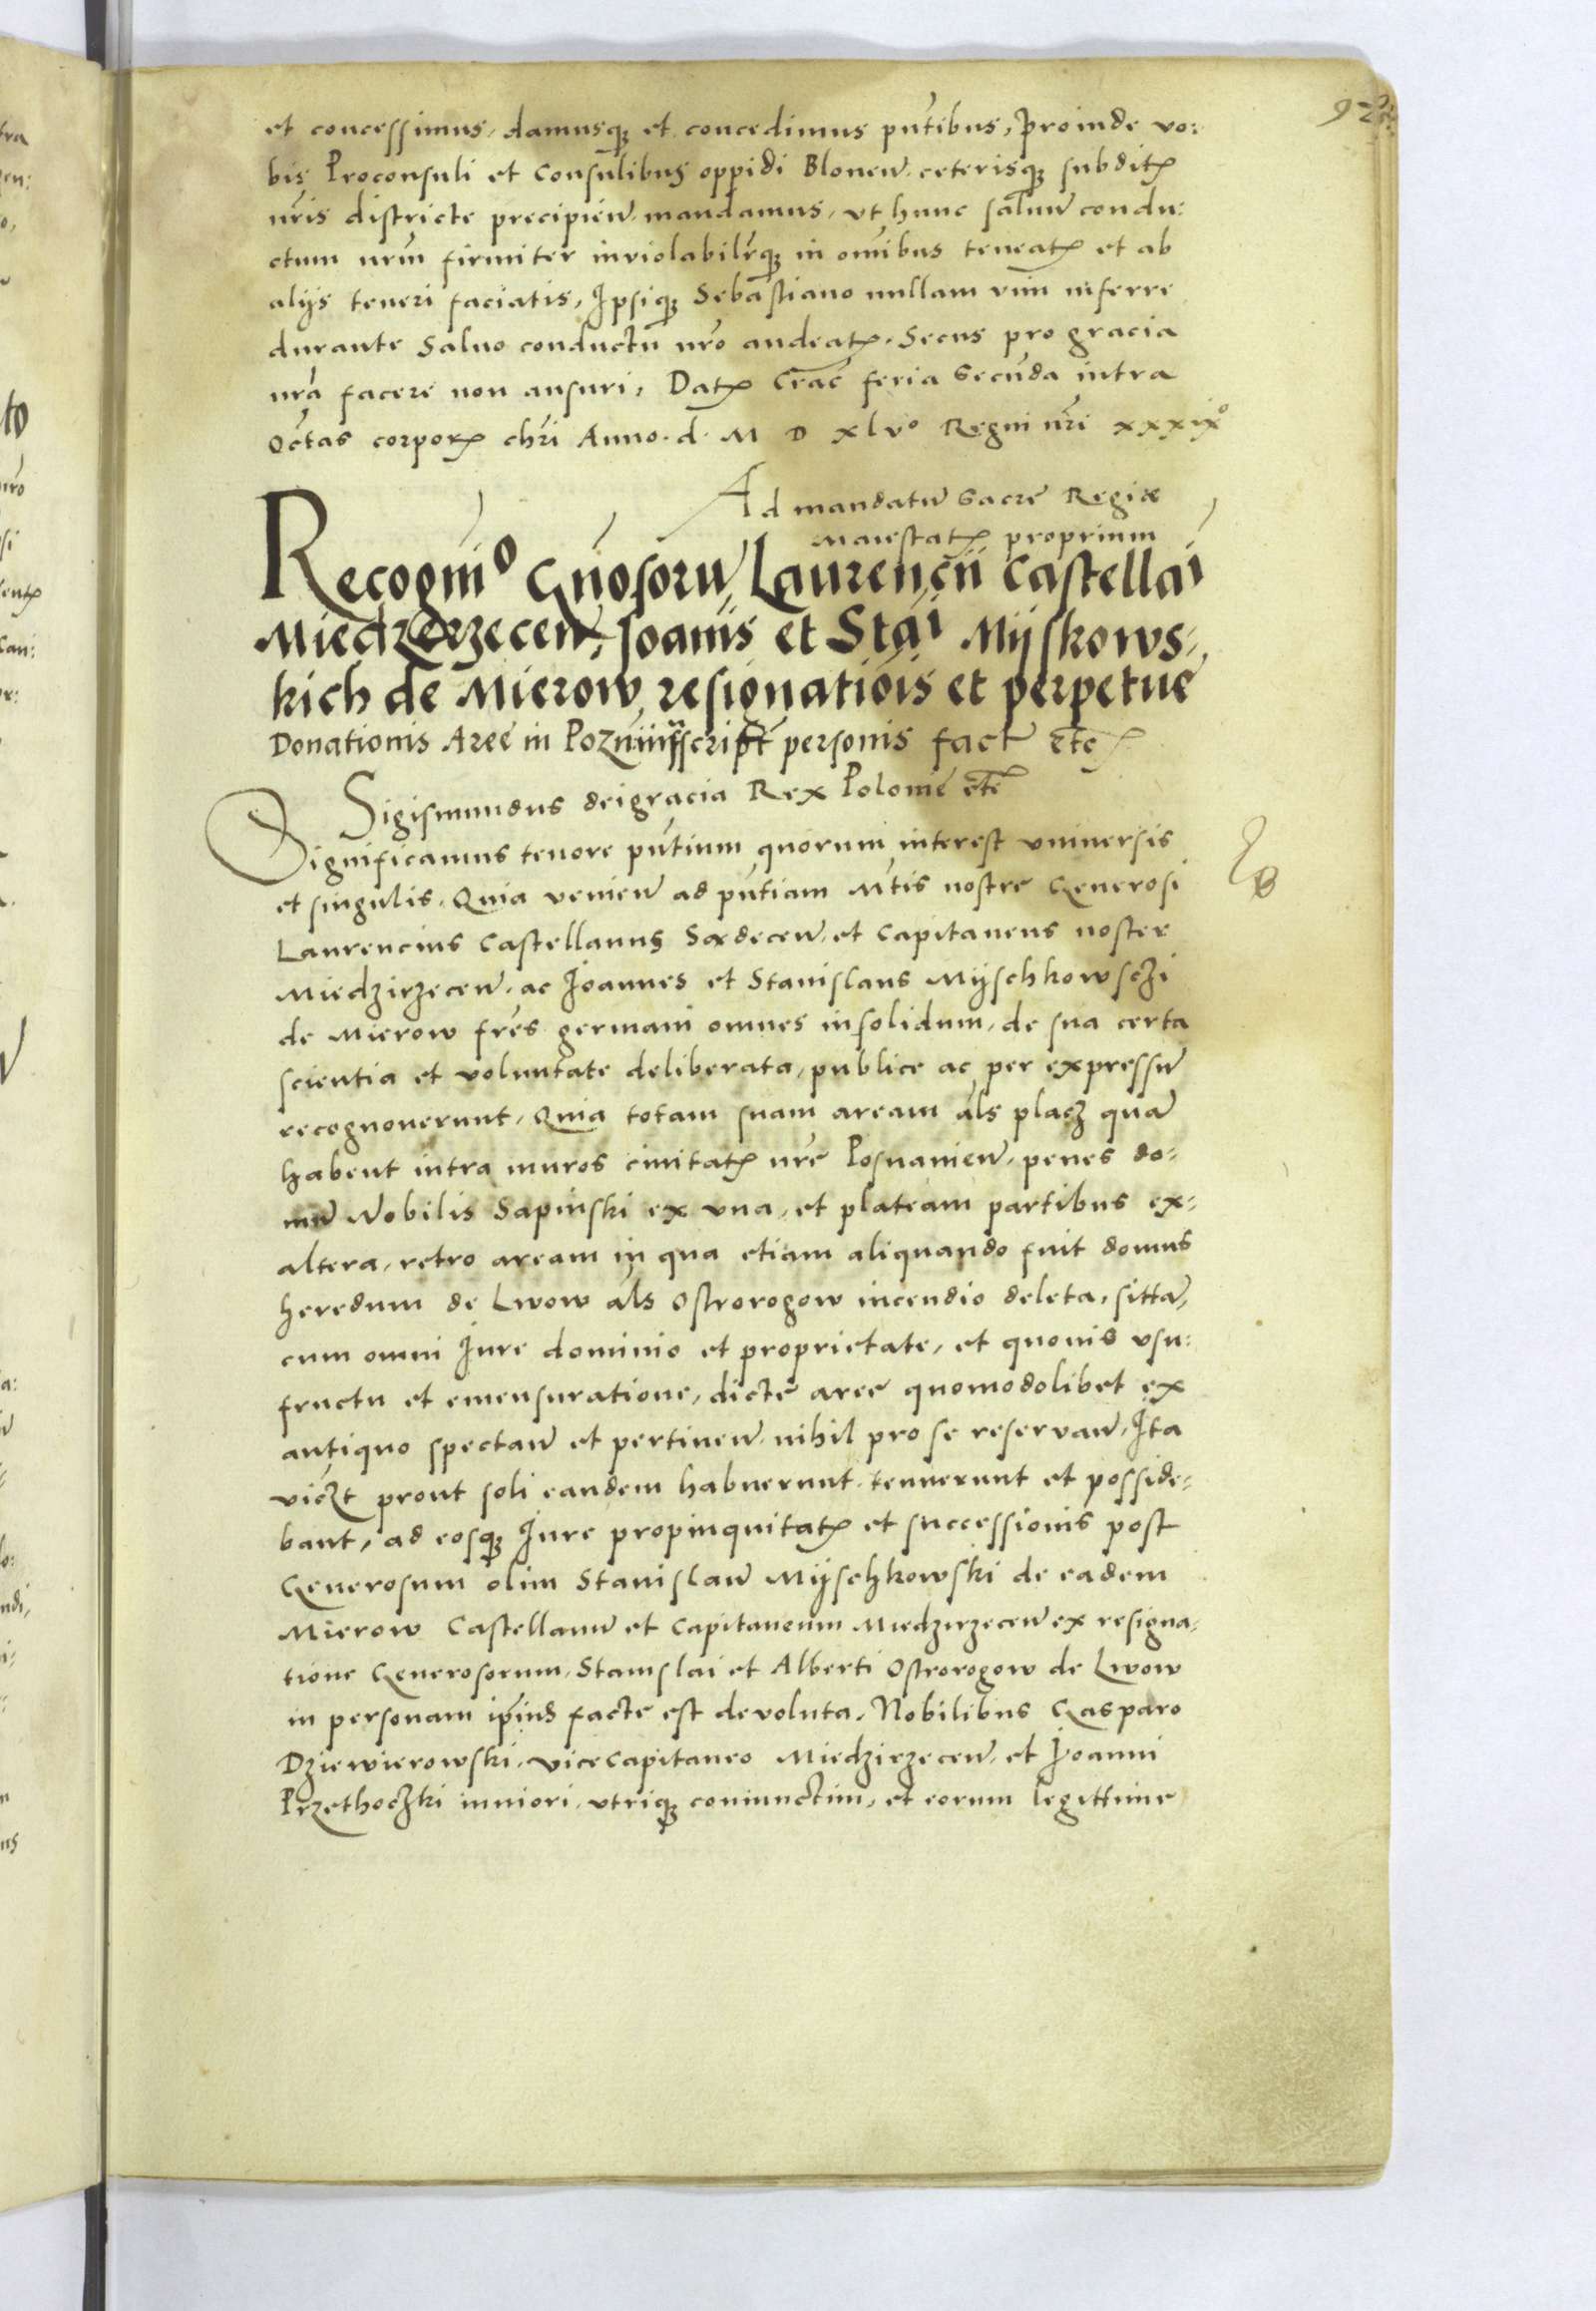 92
et concessimus, damusq3 et concedimus pñtibus, Proinde vo:
bis Proconsuli et Consulibus oppidi Blonen̄. ceterisq3 subditꝭ
nr̃is districte precipien̄. mandamus, vt hunc saluū condu:
ctum nrm̃ firmiter inviolabilr̃q3 in om̃ibus teneatꝭ et ab
alijs teneri faciatis, Ipsiq3 Sebastiano nullam vim inferre
durante Saluo conductu nrõ audeatꝭ. Secus pro gracia
nrã facere non ausuri, Datꝭ Crac̃ feria Secũda intra
Octas corporꝭ chri Anno. d. M D xlvº Regni nr̃i xxxixº
Ad mandatū Sacre Regiæ
Maiestatꝭ proprium
Recogniº Gñosorū Laurencii Castellãi
Miedzerzecen̄, Joañis et Stãi Mijskows-
kich de Mierow resignatiõis et perpetue
Donationis Aree in Poznñ infrascript̃ personis fact̃ etc̃
Sigismundus dei gracia Rex Polonie etc̃
Significamus tenore pñtium quorum interest vniversis
et singulis. Quia venien̄ ad pñtiam Mtis nostre Generosi
Laurencius Castellanus Sądecen̄. et Capitaneus noster
Miedzirzecen̄. ac Joannes et Stanislaus Mijschkowsczi
de Mierow fres germani omnes insolidum, de sua certa
scientia et voluntate deliberata, publice ac per expressū
recognoverunt, Quia totam suam aream als placz quā
habent intra muros civitatꝭ nrẽ Posnanien̄. penes do-
mū Nobilis Sapinski ex vna, et plateam partibus ex-
altera, retro aream in qua etiam aliquando fuit domus
heredum de Lwow als Ostrorogow incendio deleta, sittā,
cum omni Jure dominio et proprietate, et quovis vsu:
fructu et emensuratione, dicte aree quomodolibet ex
antiquo spectan̄ et pertinen̄. nihil pro se reservan̄, Ita
viczt prout soli eandem habuerunt. tenuerunt et posside-
bant, ad eosq3 Jure propinquitatꝭ et successionis post
Generosum olim Stanislaū Mijschkowski de eadem
Mierow Castellanū et Capitaneum Miedzirzecen̄ ex resigna-
tione Generosorum, Stanislai et Alberti Ostrorogow de Lwow
in personam ip̃ius facte est devoluta, Nobilibus Gasparo
Dziewierowski. viceCapitaneo Miedzirzecen̄. et Joanni
Przethoczki iuniori, vtriq3 coniunctim, et eorum legittime